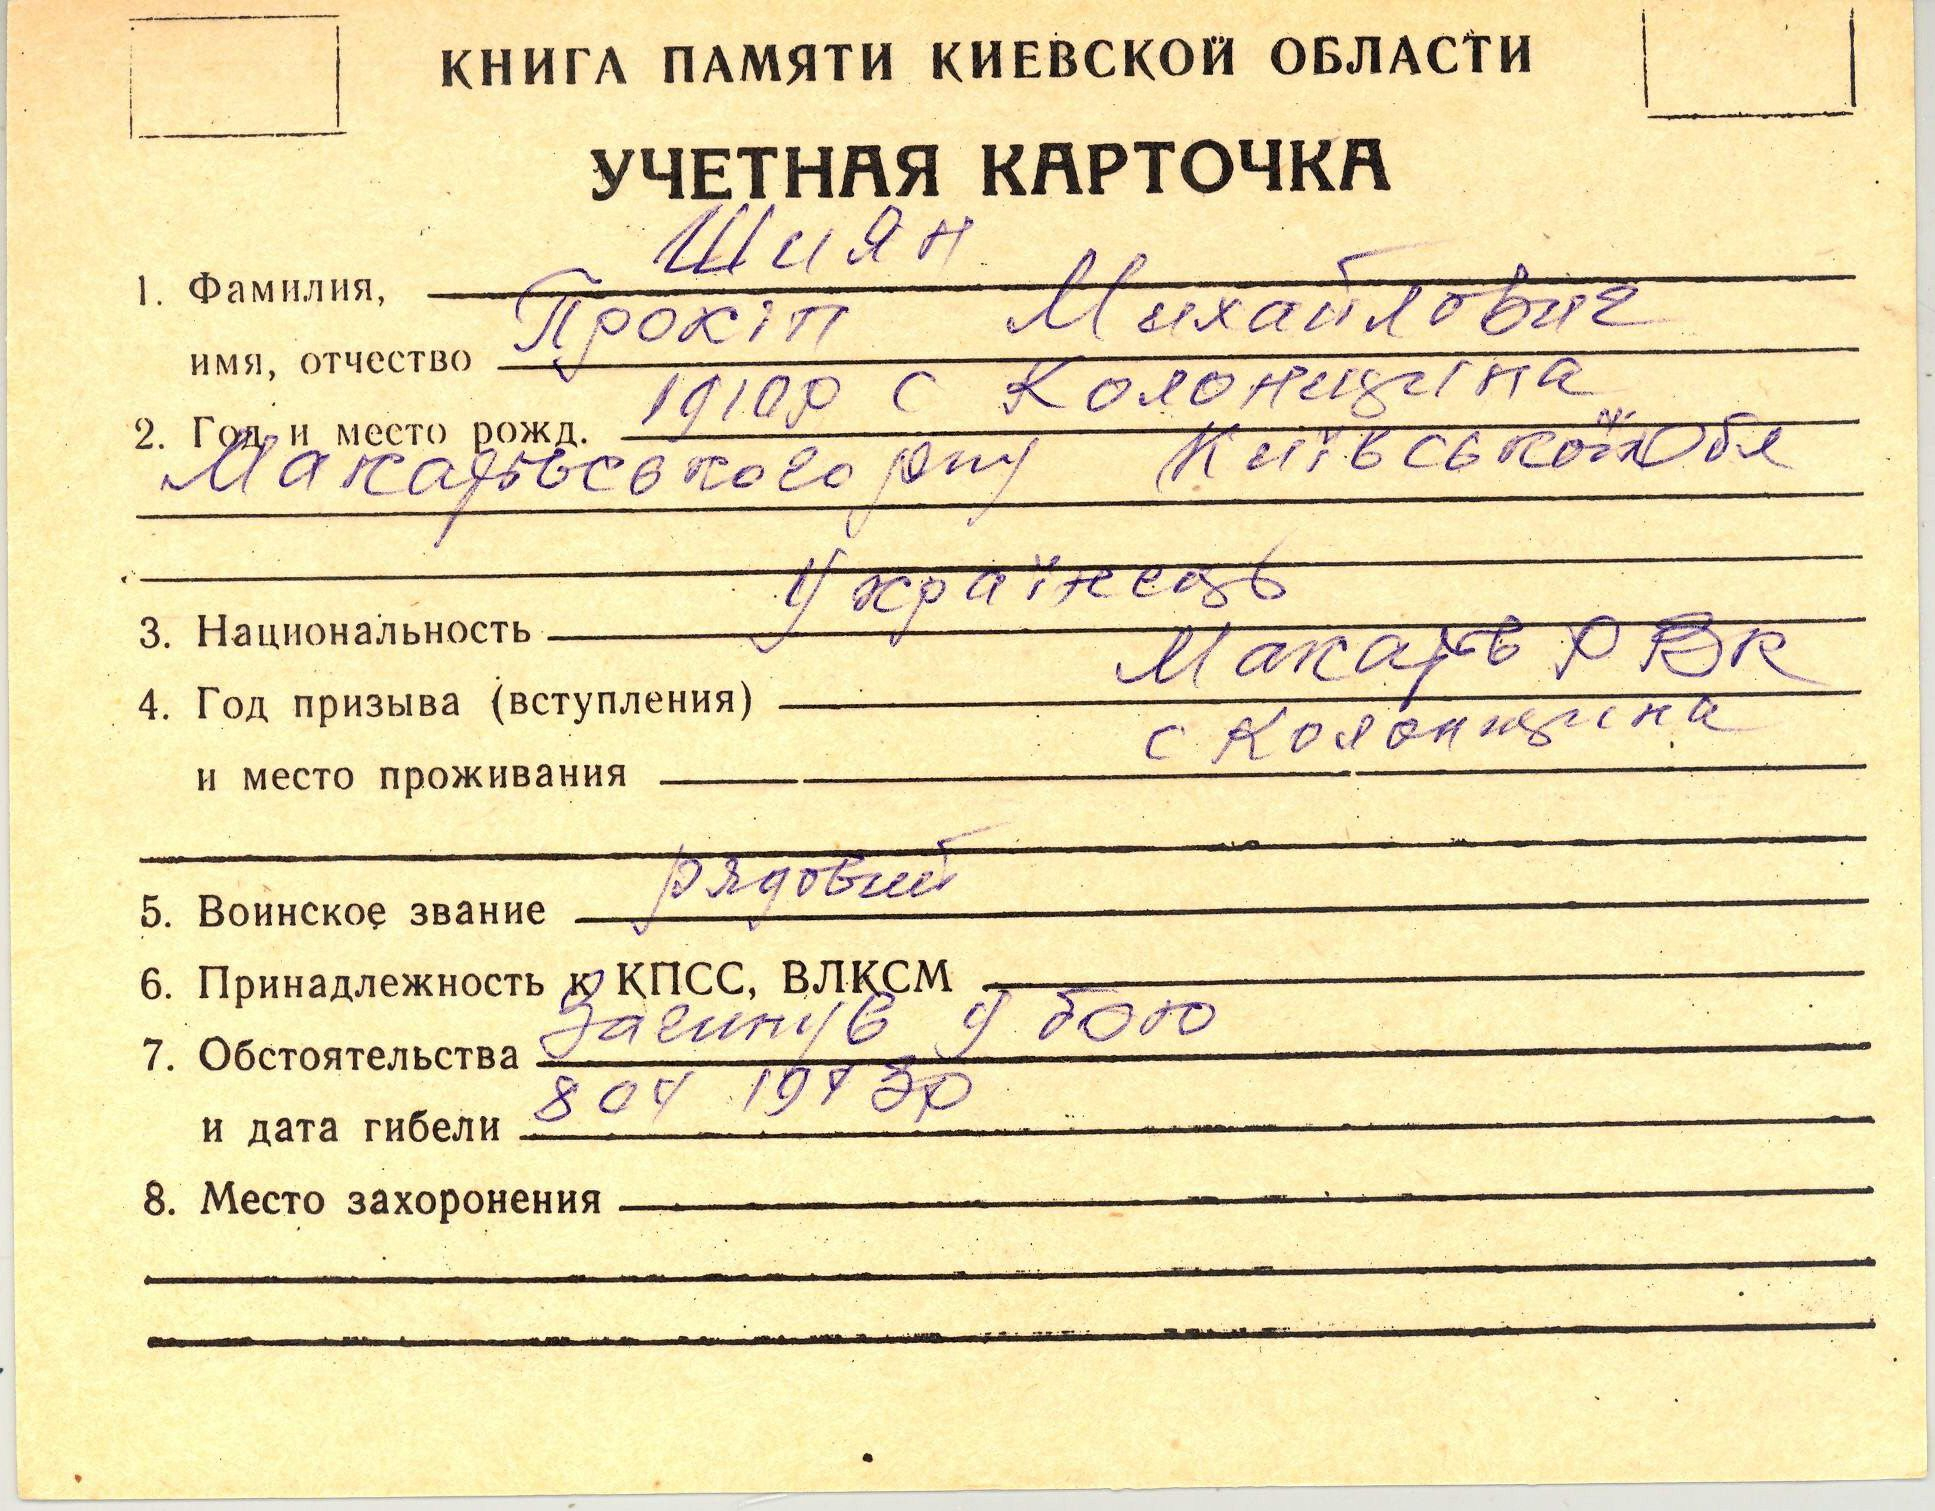 КНИГА ПАМЯТИ КИЕВСКОЙ ОБЛАСТИ
УЧЕТНАЯ КАРТОЧКА
Шиян
1. Фамилия,
Прокіп Михайлович
имя, отчество
1910р с Колонщина
2. Год и место рожд.
Макарівського р-ну Київської Обл
Українець
3. Национальность
Макарів РВК
4. Год призыва (вступления)
с Колонщина
и место проживания
рядовий
5. Воинское звание
6. Принадлежность к КПСС, ВЛКСМ
Загинув у бою
7. Обстоятельства
8 04 1943р
и дата гибели
8. Место захоронения